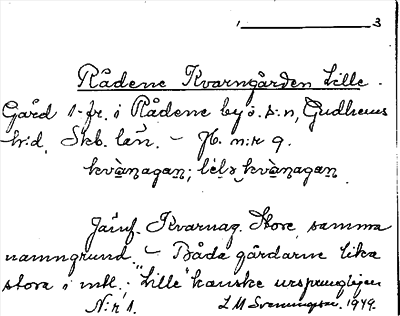 1 3
Rådene Kvarngården Lille.
Gård 1 fr. i Rådene by ö. s:n, Gudhems
h:d, Skb. län. – Jb. n:r 9.
kvànagan; lilə kvànagan
Jämf. Kvarnag. Store, samma
namngrund. – Båda gårdarne lika
stora i mtl.; "Lille" kanske ursprungligen
N:r 1. L M Svenungsson. 1949.